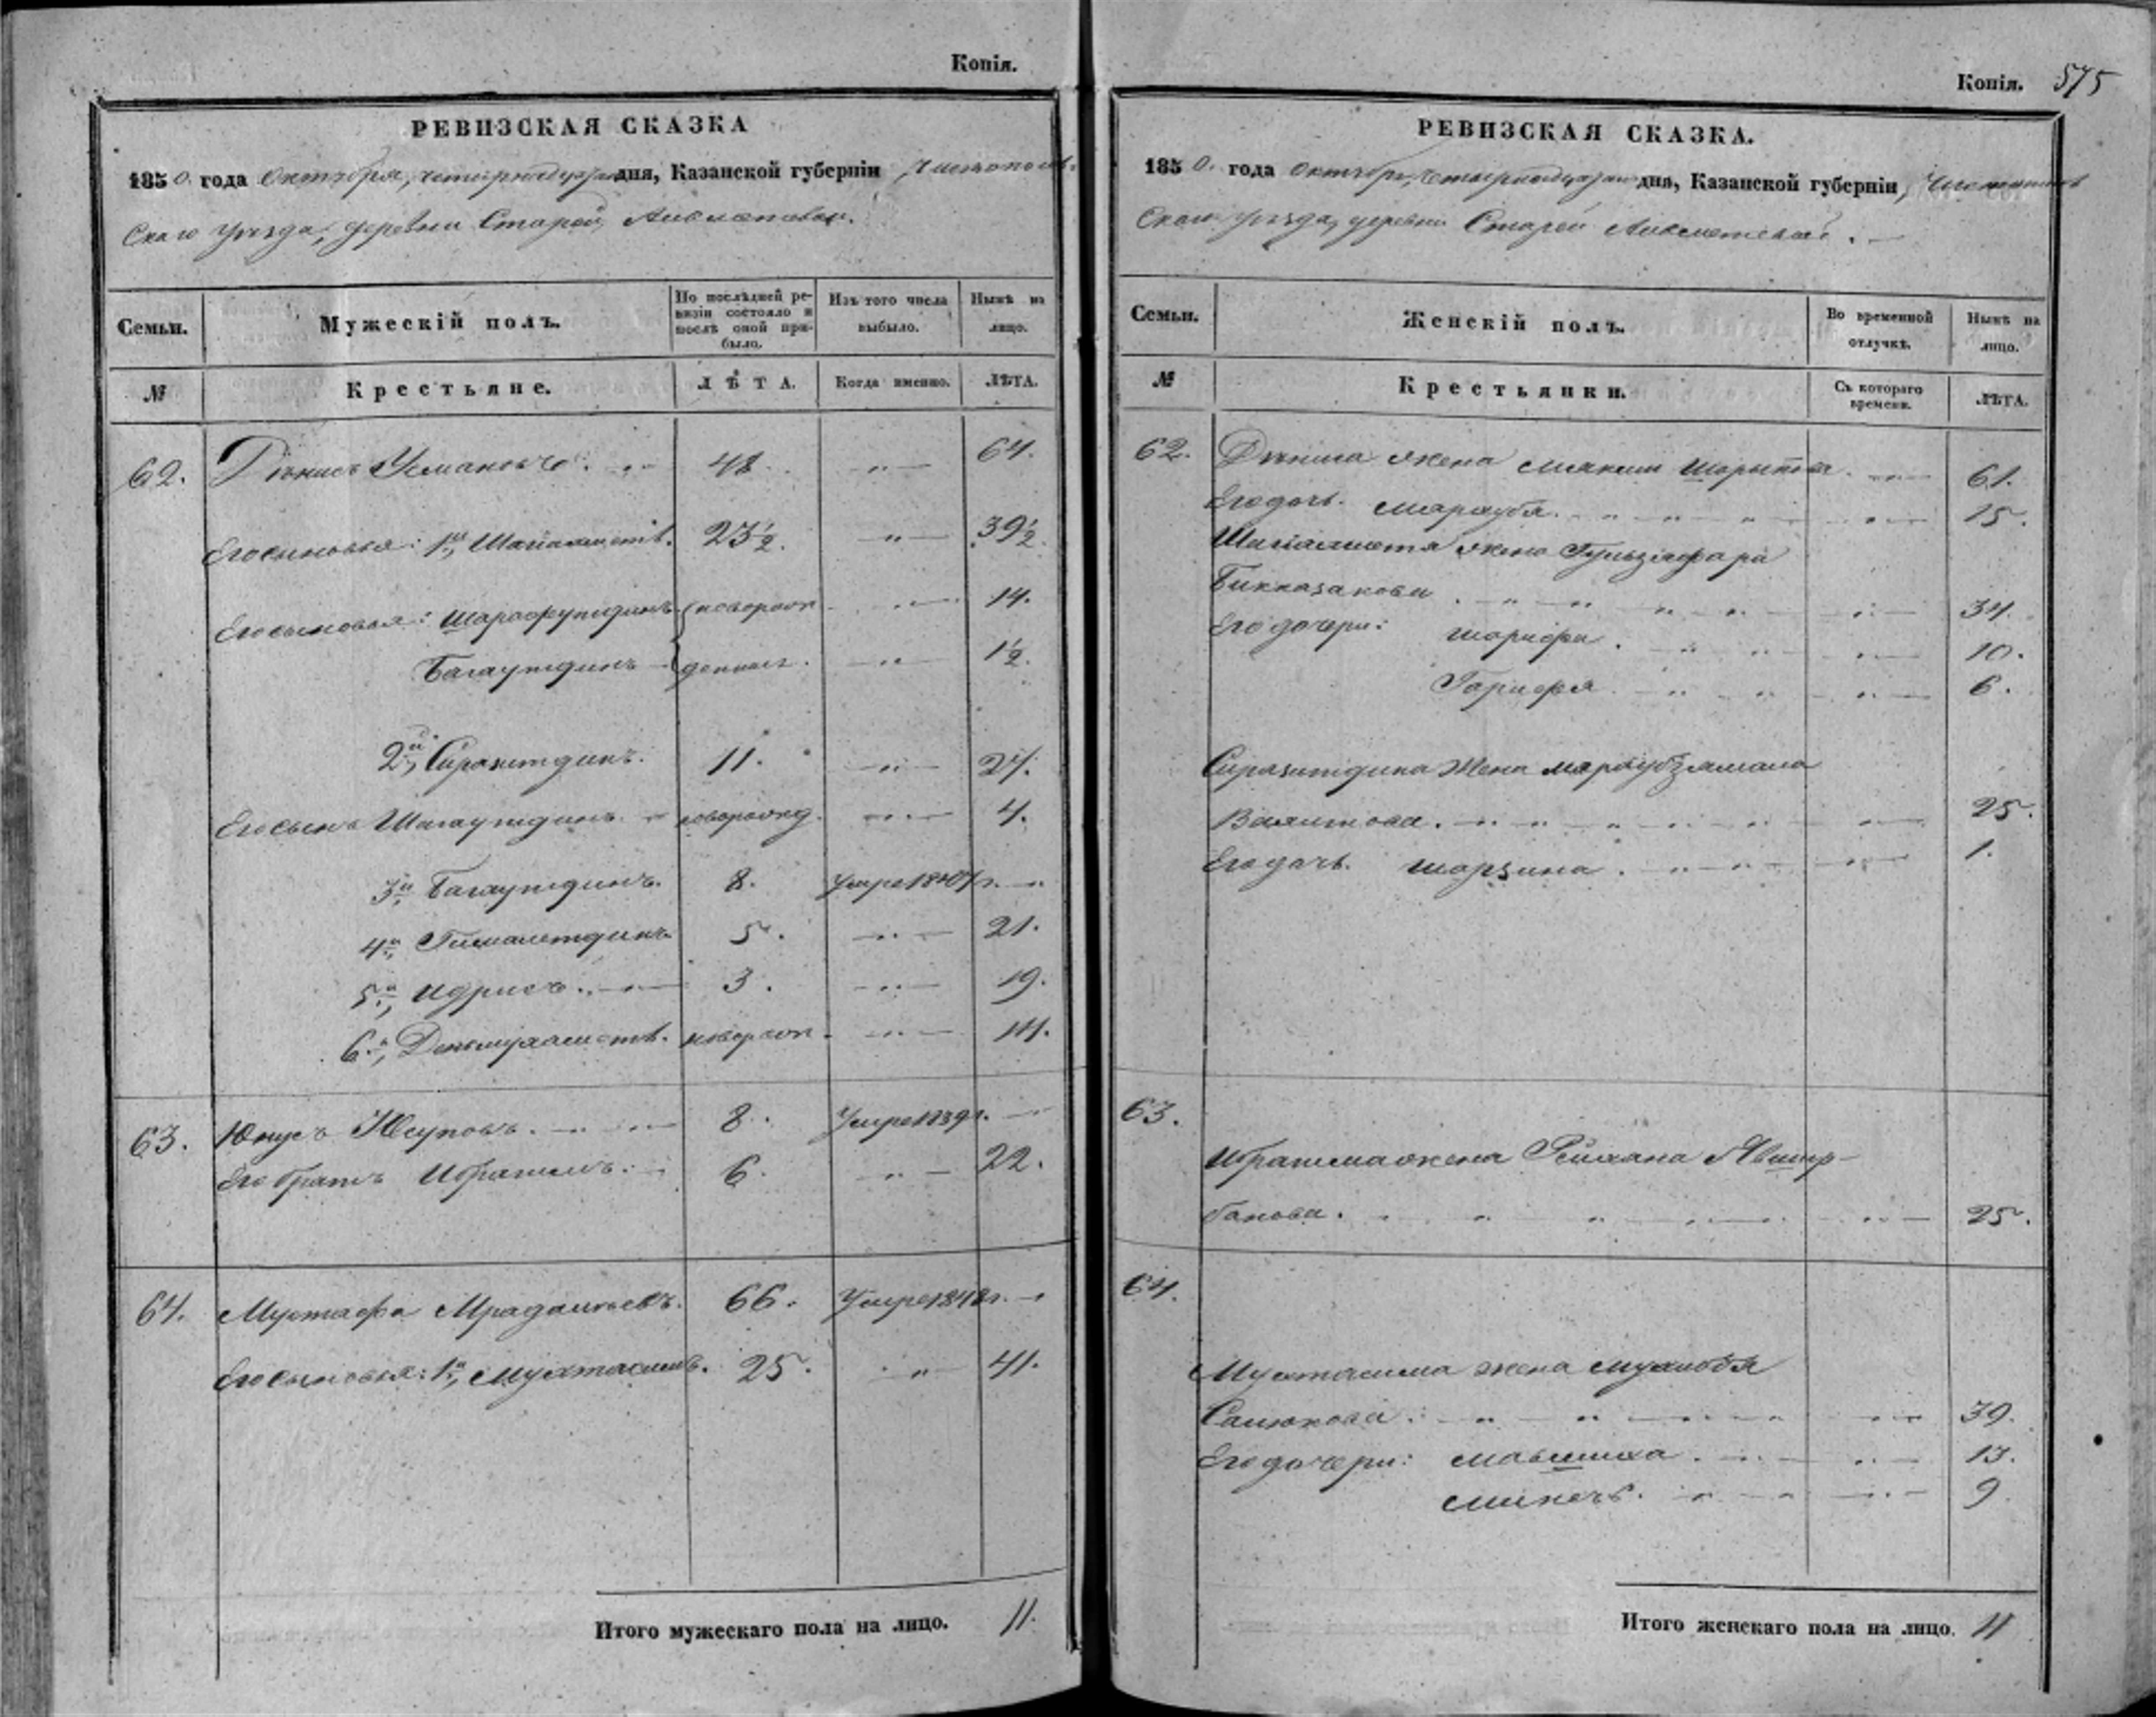 Копія.
РЕВИЗСКАЯ СКАЗКА
1850. года Октября, четырнадцатаго дня, Казанской губерніи Чистополь-
скаго уѣзда, деревни Старой
Семьи.
Мужескій полъ.
По послѣдней ре-
визіи состояло и
послѣ оной при-
было.
Изъ того числа
выбыло.
Нынѣ на
лицо.
№
Крестьяне.
ЛѢТА.
Когда именно.
ЛѢТА.
62. Усмановъ. 48. 64.
Его сыновья: 1й, Шагіахметъ. 23½. 39½.
Его сыновья: Шарафутдинъ новорож 14.
Багаутдинъ денные. 1½.
2й, Сиразетдинъ. 11. 27.
Его сынъ Шагаутдинъ. новорожд. 4.
3й, Багаутдинъ. 8. г.
4й, Гималетдинъ 5. 21.
5й, Идрисъ. 3. 19.
6й, Денмухаметъ. новорож. 14.
63. Юнусъ Юсуповъ. 8. Умре 1839 г.
Его братъ Ибрагимъ. 6. 22.
64. Мустафа 66. Умре 1848 г.
Его сыновья: 1й, Мухтасимъ. 25. 41.
Итого мужескаго пола на лицо. 11.
Копія. 575
РЕВИЗСКАЯ СКАЗКА.
1850. года Октября, четырнадцатаго дня, Казанской губерніи, Чистополь
скаго уѣзда, деревни Старой
Семьи.
Женскій полъ.
Во временной
отлучкѣ.
Нынѣ на
лицо.
№
Крестьянки.
Съ котораго
времени.
ЛѢТА.
62. жена 61.
Его дочь. 15.
Шагіахмета жена Гульзафара
Бикказакова. 34.
Его дочери: Шарифа. 10.
Гарифа. 6.
Сиразитдина жена
Валитова. 25.
Его дочь. 1.
63.
Ибрагима жена
банова. 25.
64.
Мухтасима жена Мухибзя
Салюкова. 39.
Его дочери: 13.
9.
Итого женскаго пола на лицо. 11